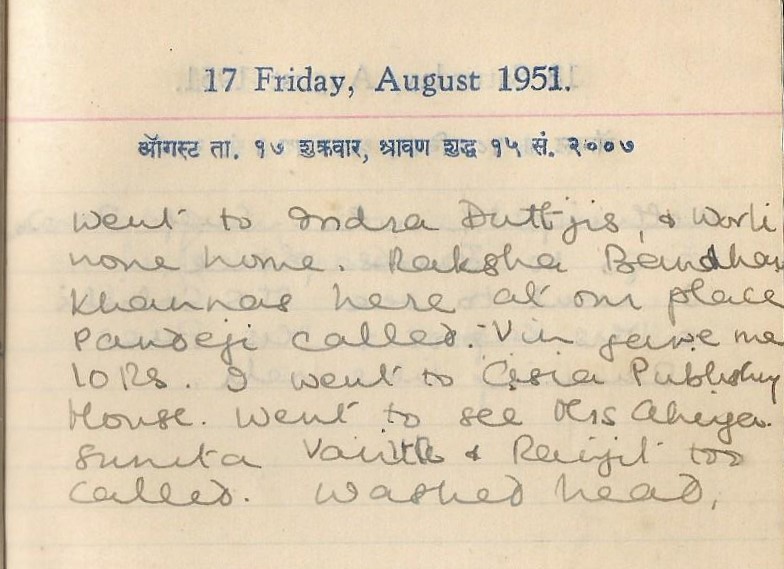 17 Friday, August 1951.
ऑगस्ट ता. १७ शुक्रवार, श्रावण शुद्ध १५ सं. २००७
Went to Indra Duttjis, & Worli
none home. Raksha Bandhan
Khannas here at our place
Pandeji called. Vin gave me
10 Rs. I went to Asia Publishing
House. Went to see Mrs
Sunita & Ranjit too
called. Washed head.